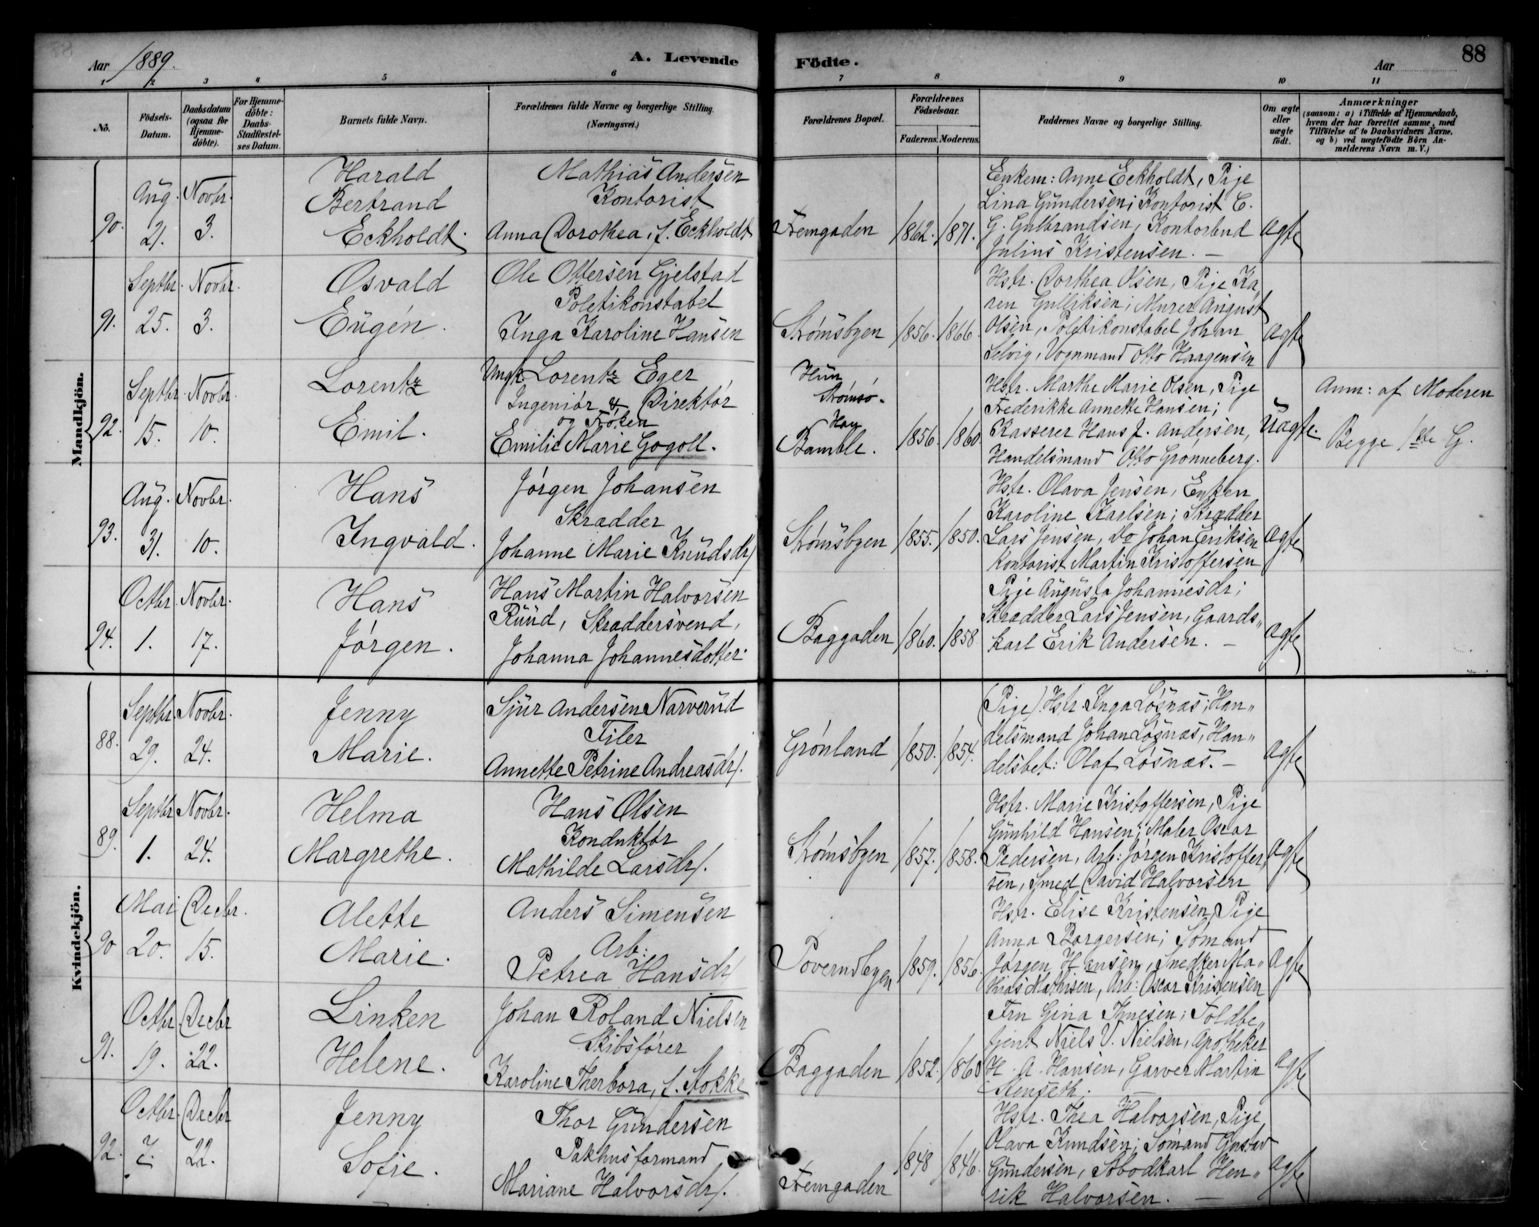 Aar 1889.
A. Levende Födte.
88
Aar
1 2 3 4 5 6 7 8 9 10 11
No.
Födsels-Datum.
Daabsdatum (ogsaa for Hjemme-döbte).
For Hjemme-döbte: Daabs-Stadfæstel-ses Datum.
Barnets fulde Navn.
Forældrenes fulde Navne og borgerlige Stilling. (Næringsvei.)
Forældrenes Bopæl.
Forældrenes Födselsaar.
Faderens. Moderens.
Faddernes Navne og borgerlige Stilling.
Om ægte eller uægte födt.
Anmærkninger
(saasom: a) i Tilfælde af Hjemmedaab, hvem der har forrettet samme, med Tilföielse af to Daabsvidners Navne, og b) ved uægtefödte Börn An-melderens Navn m. V.)
Mandkjön.
90. Aug. 21. Novbr. 3.
Harald
Bertrand
Eckholdt.
Mathias Andersen
Kontorist
Anna Dorothea, f. Eckholdt
Fremgaden 1862. 1871.
Enkem: Anne Eckholdt, Pige
Lina Gundersen; Kontorist C.
G. Gulbrandsen, Kontorbud
Julius Kristensen. —
ægte
91. Septbr. 25. Novbr. 3.
Osvald
Eugén.
Ole Ottersen Gjelstad
Politikonstabel
Inga Karoline Hansen
Strømsbyen 1856. 1866.
Hstr. Dorthea Olsen, Pige Ka
ren Gulliksen; Murer August
Olsen, Politikonstabel Johan
Selvig, Vognmand Otto Haagensen
ægte
92. Septbr. 15. Novbr. 10.
Lorentz
Emil.
Ungk. Lorentz Eger
Ingeniør & Direktør
og Frøken
Emilie Marie Gogoll.
Hun
Strømsø.
Han
Bamble. 1856. 1860
Hstr. Marthe Marie Olsen, Pige
Frederikke Annette Hansen;
Kasserer Hans J. Andersen,
Handelsmand Otto Grønneberg.
Uægte.
Anm: af Moderen
Begge 1ste G.
93. Aug. 31. Novbr. 10.
Hans
Ingvald.
Jørgen Johansen
Skrædder
Johanne Marie Knudsdr.
Strømsbyen 1855. 1850.
Hstr. Olava Jensen, Enken
Karoline Karlsen; Skrædder
Lars Jensen, Do Johan Eriksen
Kontorist Martin Kristoffersen
ægte
94. Octbr. 1. Novbr. 17.
Hans
Jørgen.
Hans Martin Halvorsen
Ruud, Skræddersvend,
Johanna Johannesdotter.
Baggaden 1860. 1858
Pige Augusta Johannesdr;
Skrædder Lars Jensen, Gaards-
karl Erik Andersen. —
ægte
Kvindekjön.
88. Septbr. 29. Novbr. 24.
Jenny
Marie.
Sjur Andersen Narverud
Filer
Annette Petrine Andreasdr.
Grønland 1850. 1854.
(Pige) Hstr. Inga Løsnæs; Han-
delsmand Johan Løsnæs, Han-
delsbet: Olaf Løsnæs. —
ægte
89. Septbr. 1. Novbr. 24.
Helma
Margrethe.
Hans Olsen
Konduktør
Mathilde Larsdr.
Strømsbyen 1857. 1858.
Hstr. Marie Kristoffersen, Pige
Gunhild Hansen; Maler Oscar
Pedersen, Arb: Jørgen Kristoffer
sen, Smed David Halvorsen
ægte
90 Mai 20. Decbr. 15.
Alette
Marie.
Anders Simensen
Arb:
Petrea Hansdr
1859. 1856.
Hstr. Elise Kristensen, Pige
Anna Borgersen; Sømand
Jørgen Hansen, Snedker
Arb: Oscar Kristensen
ægte
91. Octbr 19. Decbr 22.
Linken
Helene.
Johan Roland Nielsen
Skibsfører
Karoline Therbora, f. Stokke
Baggaden 1852. 1860
Fru Gina Thnesen; Toldbe-
tjent Niels V. Nielsen, Apotheker
H. A. Hansen, Garver Martin
Stenseth.
ægte
92. Octbr. 7. Decbr 22.
Jenny
Sofie.
Thor Gundersen
Pakhusformand
Mariane Halvorsdr.
Fremgaden 1848 1846.
Hstr. Thea Halvorsen, Pige
Olava Knudsen; Sømand
Gundersen, Hen-
rik Halvorsen. —
ægte